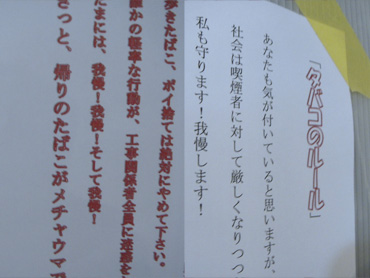 「タバコのルール」
あなたも気が付いていると思いますが、
社会は喫煙者に対して厳しくなりつつ
私も守ります！我慢します！
歩きたばこ、ポイ捨ては絶対にやめて下さい。
誰かの軽率な行動が、工事関係者全員に迷惑を
たまには、我慢！我慢！そして我慢！
きっと、帰りのたばこがメチャウマで